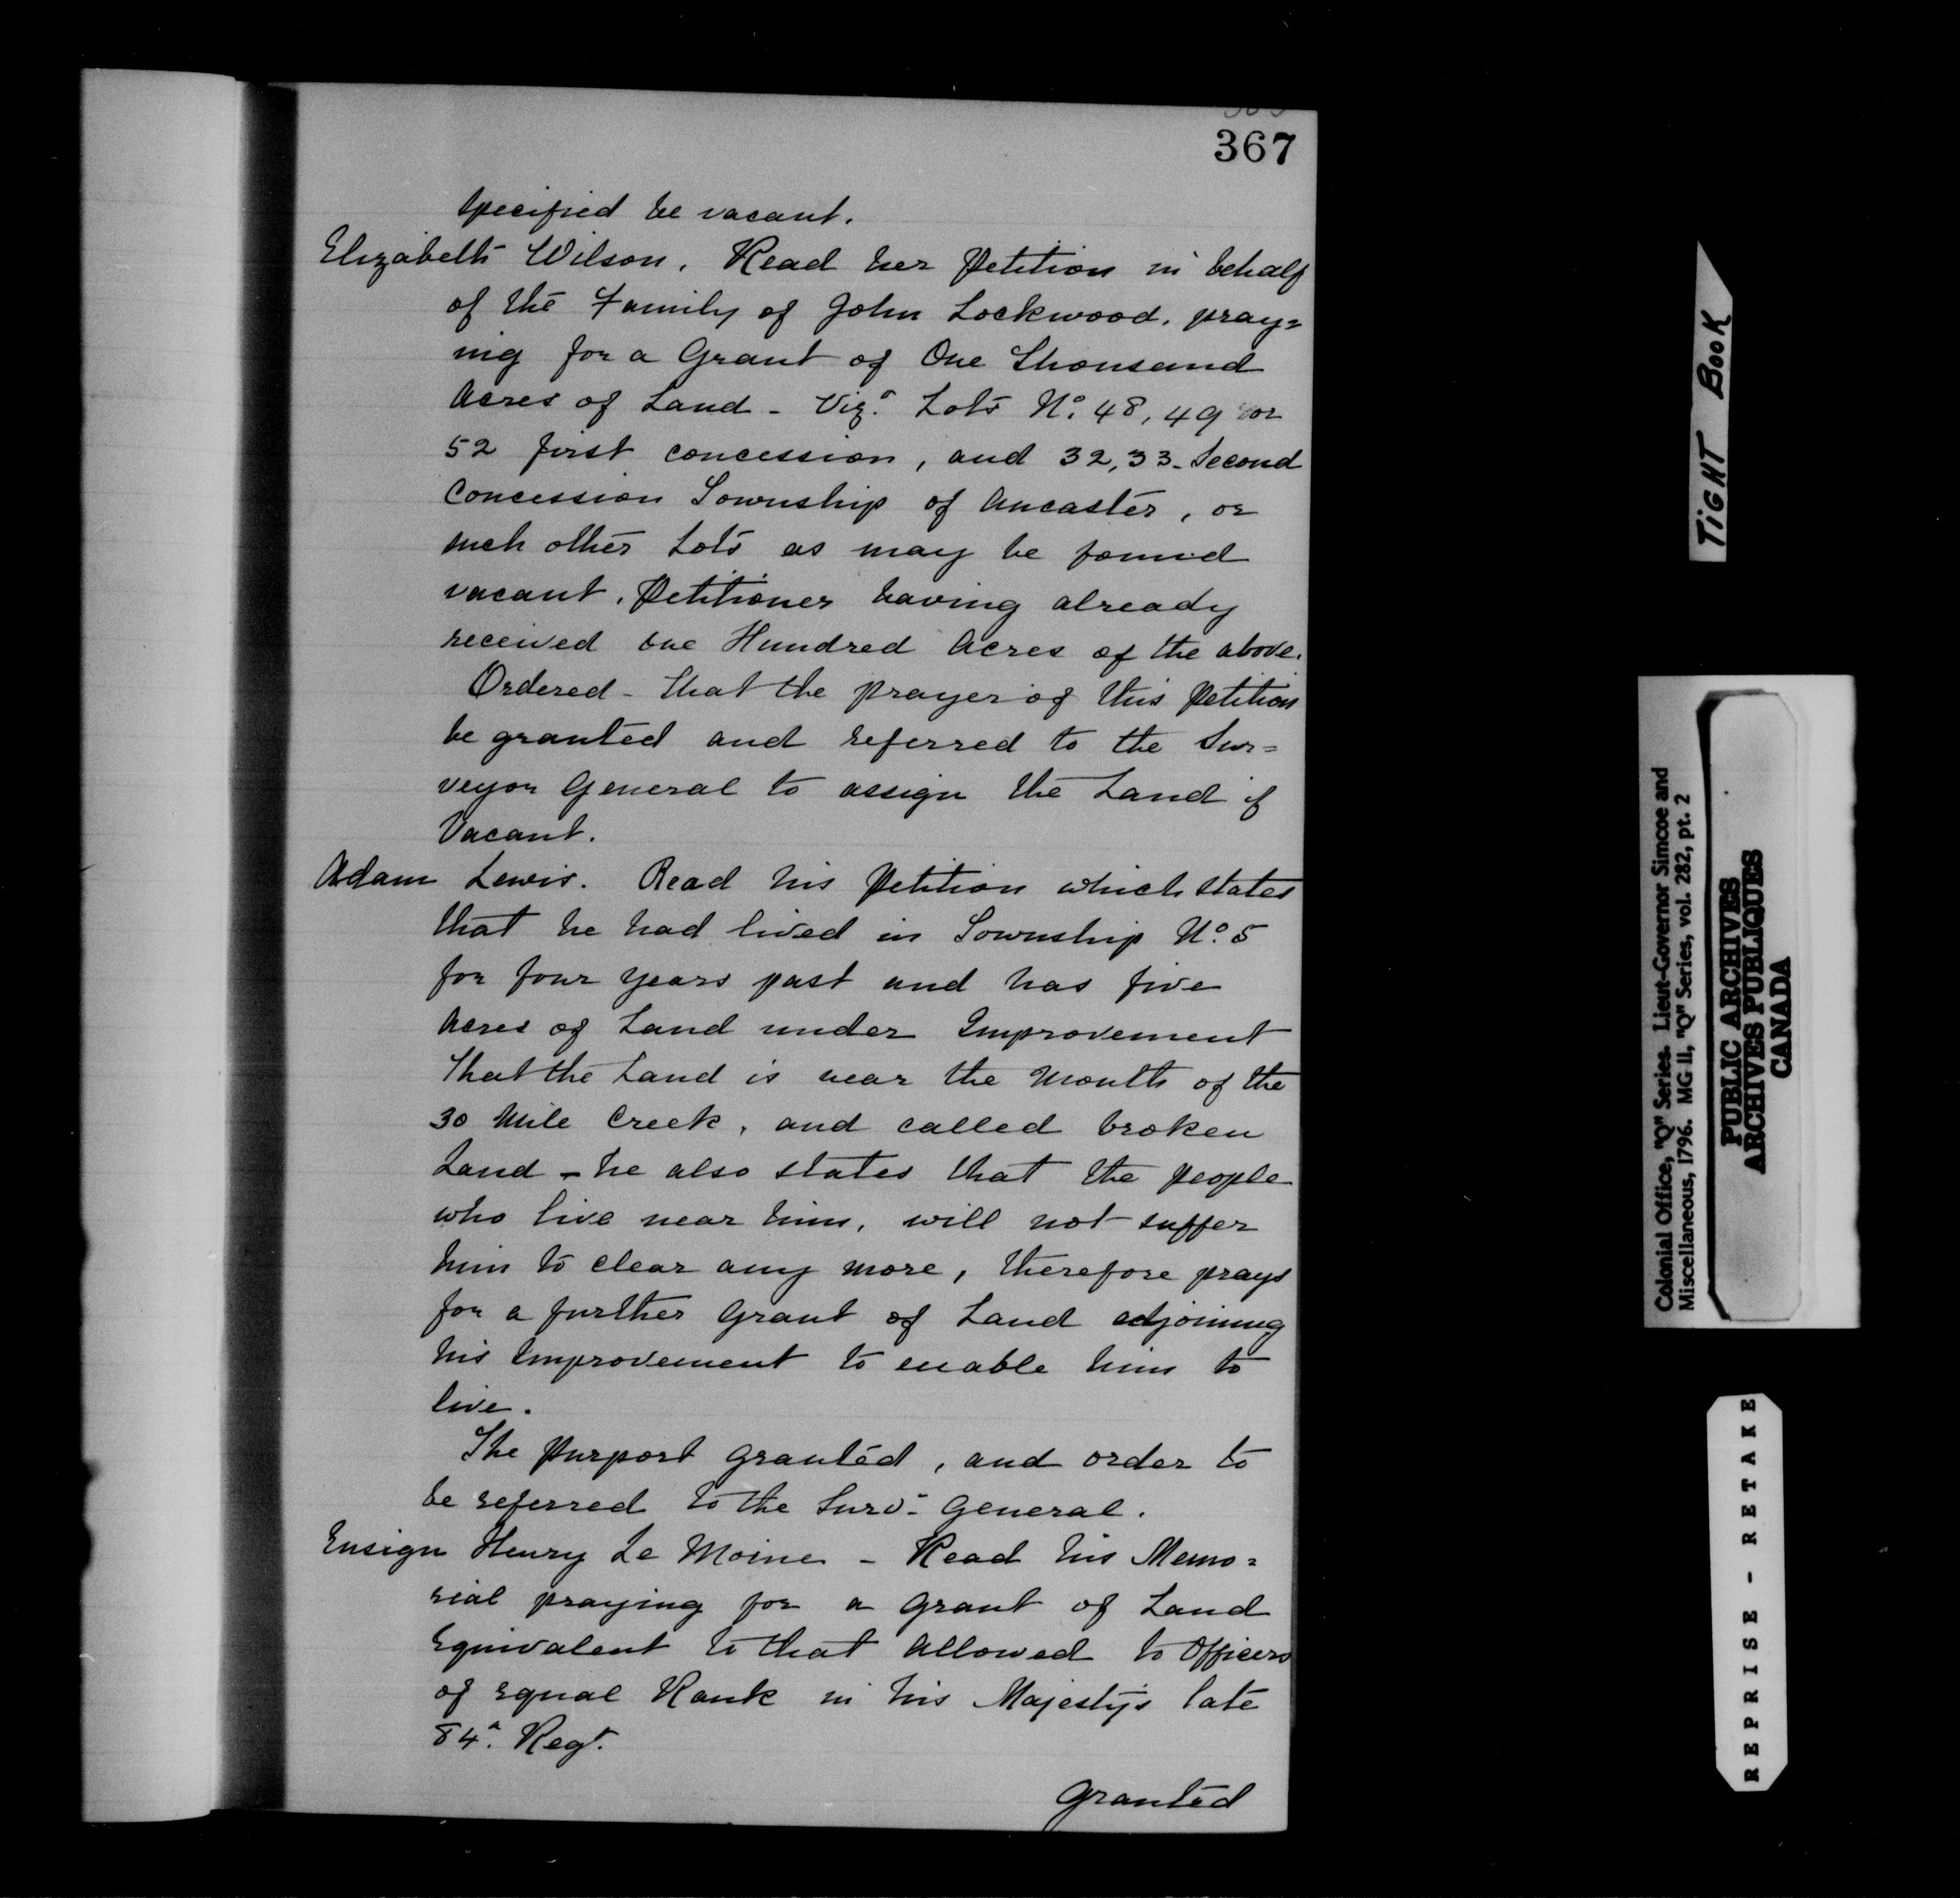 367
specified be vacant.
Elizabeth Wilson. Read her Petition in behalf
of the Family of John Lockwood. pray=
ing for a Grant of One Thousand
Acres of Land - Viz. Lots No. 48, 49 or
52 first concession, and 32, 33 - Second
Concession Township of Ancaster, or
such other Lots as may be found
vacant. Petitioner having already
received one Hundred Acres of the above.
Ordered - that the prayer of this Petition
be granted and referred to the Sur=
veyor General to assign the Land if
Vacant.
Adam Lewis. Read his Petition which states
that he had lived in Township No. 5
for four years past and has five
Acres of Land under Improvement
That the Land is near the Mouth of the
30 Mile Creek, and called broken
Land - he also states that the people
who live near him, will not suffer
him to clear any more, therefore prays
for a further Grant of Land adjoining
his Improvement to enable him to
live.
The Purport granted, and order to
be referred to the Surv. General.
Ensign Henry Le Moine - Read his Memo=
rial praying for a Grant of Land
Equivalent to that allowed to Officers
of equal Rank in his Majesty's late
84. Regt.
Granted
TiGHT BooK
Colonial Office, "Q" Series. Lieut-Governor Simcoe and
Miscellaneous, 1796. MG 11, "Q" Series, vol. 282, pt. 2
PUBLIC ARCHIVES
ARCHIVES PUBLIQUES
CANADA
REPRISE - RETAKE